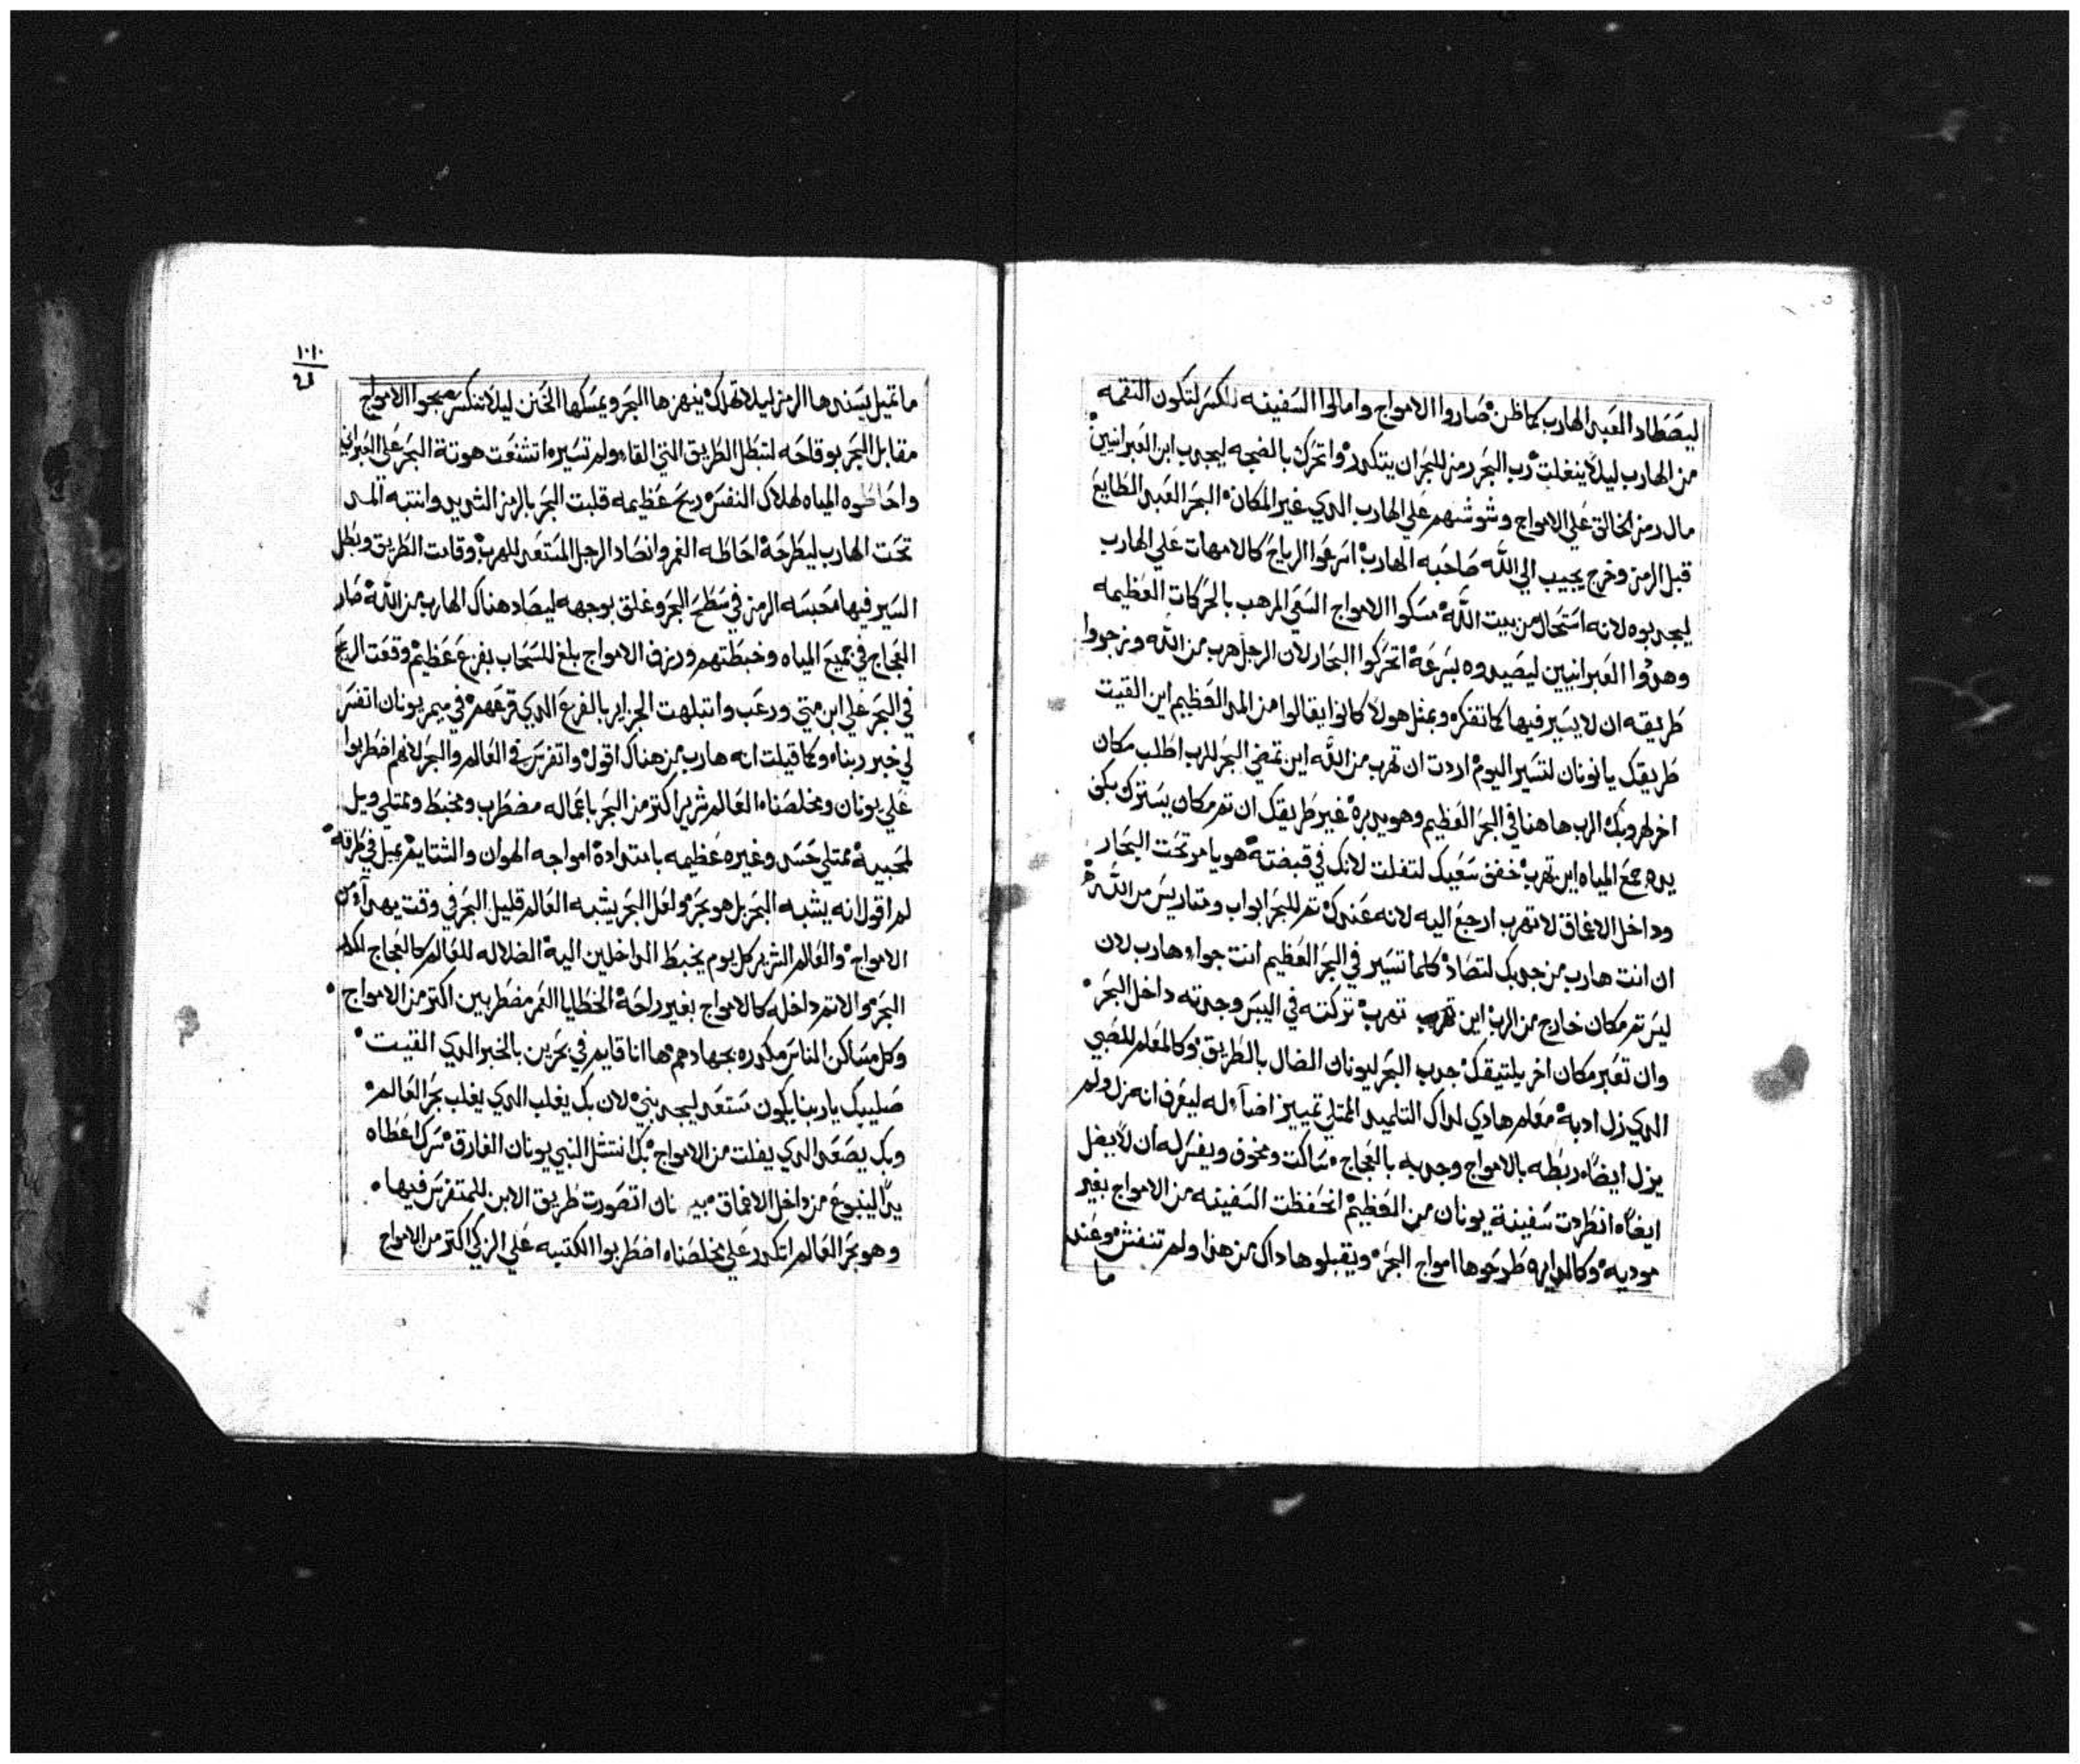 ليصطاد العبد الهارب كما ظن صاروا الامواج وامالوا السفينه للكسر لتكون النقمه
من الهارب ليلا ينغلت رب البحر رمز للبحر ان يتكدر واتحرك بالضجه ليجدب ابن العبرانيين
مال رمز الخالق علي الامواج وشوشهم علي الهارب الدي غير المكان البحر العبد الطايع
قبل الرمز وخرج يجيب الي الله صاحبه الهارب اسرعوا الرياح كالامهات علي الهارب
ليجدبوه لانه استحال من بيت الله مسكوا الامواج السقي المرهب بالحركات العظيمه
وهدوا العبرانيين ليصيدوه بسرعه اتحركوا البحار لان الرجل هرب من الله ونرجوا
طريقه ان لا يسير فيها كما تفكره وبمثل هولا كانوا يقالوا من المد العظيم اين القيت
طريقك يا نونان لتسير اليوم اردت ان تهرب من الله اين تمضي البحر للرب اطلب مكان
اخر لهروبك الرب هاهنا في البحر العظيم وهو يدبره غير طريقك ان تم مكان يستترك بكف
يده جمع المياه اين تهرب خفف سعيك لتفلت لانك في قبضته هو يامر تحت البحار
وداخل الاعماق لا تهرب ارجع اليه لانه عندك تم للبحر ابواب ومتاريس من الله
ان انت هارب من جدبك لتصاد كلما تسير في البحر العظيم انت جواه هارب لان
ليس تم مكان خارج من الرب اين تهرب تهرب تركته في اليبس وجدته داخل البحر
وان تعبر مكان اخر يلتيقك جدب البحر ليونان الضال بالطريق وكالمعلم للصبي
الدي زل ادبه معلم هادي لداك التلميد الممتلي تمييز اضاء له ليعرف انه زل ولم
يزل ايضا ربطه بالامواج وجدبه بالعجاج ساكت ومخوف ويفسر له ان لا يضل
ايضا انطردت سفينة يونان من العظيم انحفظت السفينه من الامواج بغير
موديه وكالدايره طرحوها امواج البحر ويقبلوها داك من هدا ولم تنفش وعند
ما
١٠١٠
ما تميل يسندها الرمز ليلا تهلك ينهزها البحر ويمسكها الحنن ليلا تنكسر يجوا الامواج
مقابل البحر بوقاحه لتبطل الطريق التي القاه ولم تسيره اتشنعت هوتة البحر علي العبراني
واحاطوه المياه لهلاك النفس ريح عظيمه قلبت البحر بالرمز الشديد وانتبه المد
تحت الهارب ليطرحه احاطه الغمر وانصاد الرجل المستعد للهرب وقامت الطريق وبطل
السير فيها محبسه الرمز في سطح البحر وغلق بوجهه ليصاد هناك الهارب من الله صار
العجاج في جميع المياه وخبطتهم ورزف الامواج بلغ للسحاب بفزع عظيم وقعت الريح
في البحر علي ابن متي ورعب وانتبلهت الجزاير بالفزع الدي قرعهم في ميمر يونان اتفسر
لي خبر ربناه وكما قيلت انه هارب من هناك اقول واتفرس في العالم والبحر لانهم اضطربوا
علي يونان ومخلصناه العالم شرير اكتر من البحر باعماله مضطرب ومخبط وممتلي ويل
لمحبيه ممتلي حسد وغيره عظيمه باشدادة امواجه الهوان والشتايم يميل في طرقه
لم اقول انه يشبه البحر بل هو بحر ولعل البحر يشبه العالم قليل البحر في وقت يهدأ من
الامواج والعالم الشرير كل يوم يخبط الداخلين اليه الضلاله للعالم كالعجاج لكدر
البحر والاتم داخله كالامواج بغير راحة الخطايا الغمر مضطربين اكتر من الامواج
وكل مساكن الناس مكدره بجهادهم ها انا قايم في بحرين بالخبر الدي القيت
صليبك ياربنا يكون مستعد ليجدبني لان بك يغلب الدي يغلب بحر العالم
وبك يصعد الدي يفلت من الامواج بك انتشل النبي يونان الغارق سرك اعطاه
يدا لينبوع من داخل الاعماق اتصورت طريق الابن للمتفرس فيها
وهو بحر العالم اتكدر علي مخلصناه اضطربوا الكتبه علي الزكي اكتر من الامواج